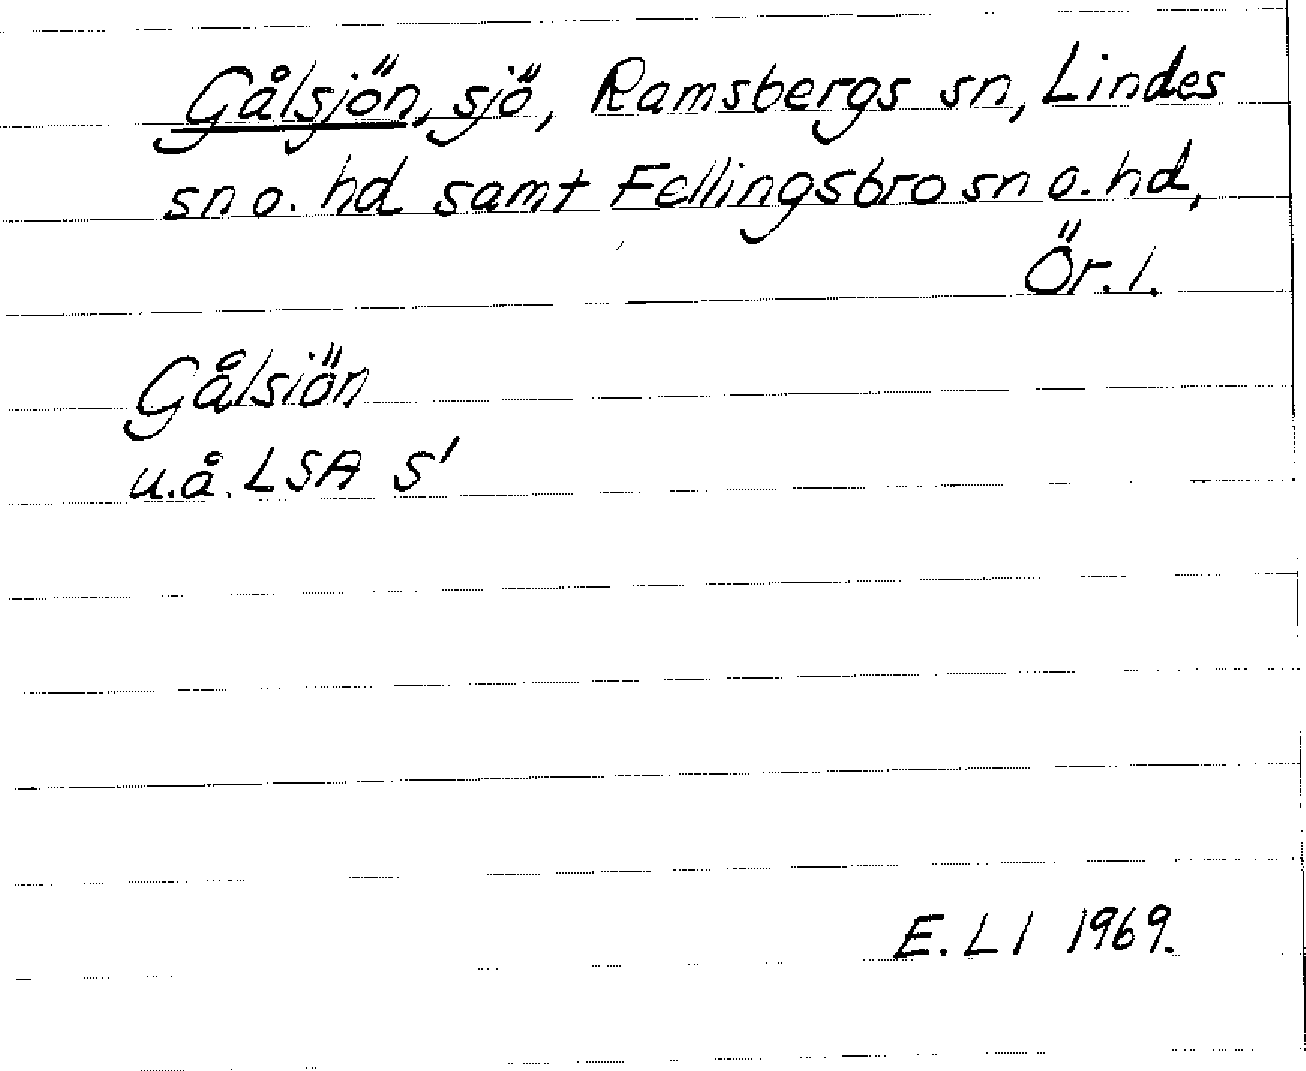 Gålsjön, sjö, Ramsbergs sn, Lindes
sn o. hd samt Fellingsbro sn o. hd,
Ör. l.
Gålsiön
u.å. LSA S1
E. Ll 1969.